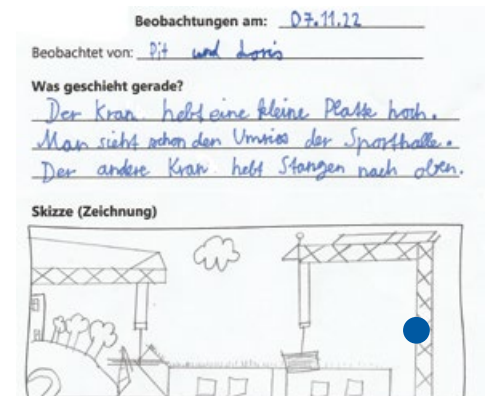 Beobachtungen am: 07.11.22
Beobachtet von: Pit und Loris
Was geschieht gerade?
Der Kran hebt eine kleine Platte hoch.
Man sieht schon den Umriss der Sporthalle.
Der andere Kran hebt Stangen nach oben.
Skizze (Zeichnung)